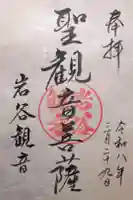 奉拝
聖觀音菩薩
岩谷観音
令和八年
二月二十九日